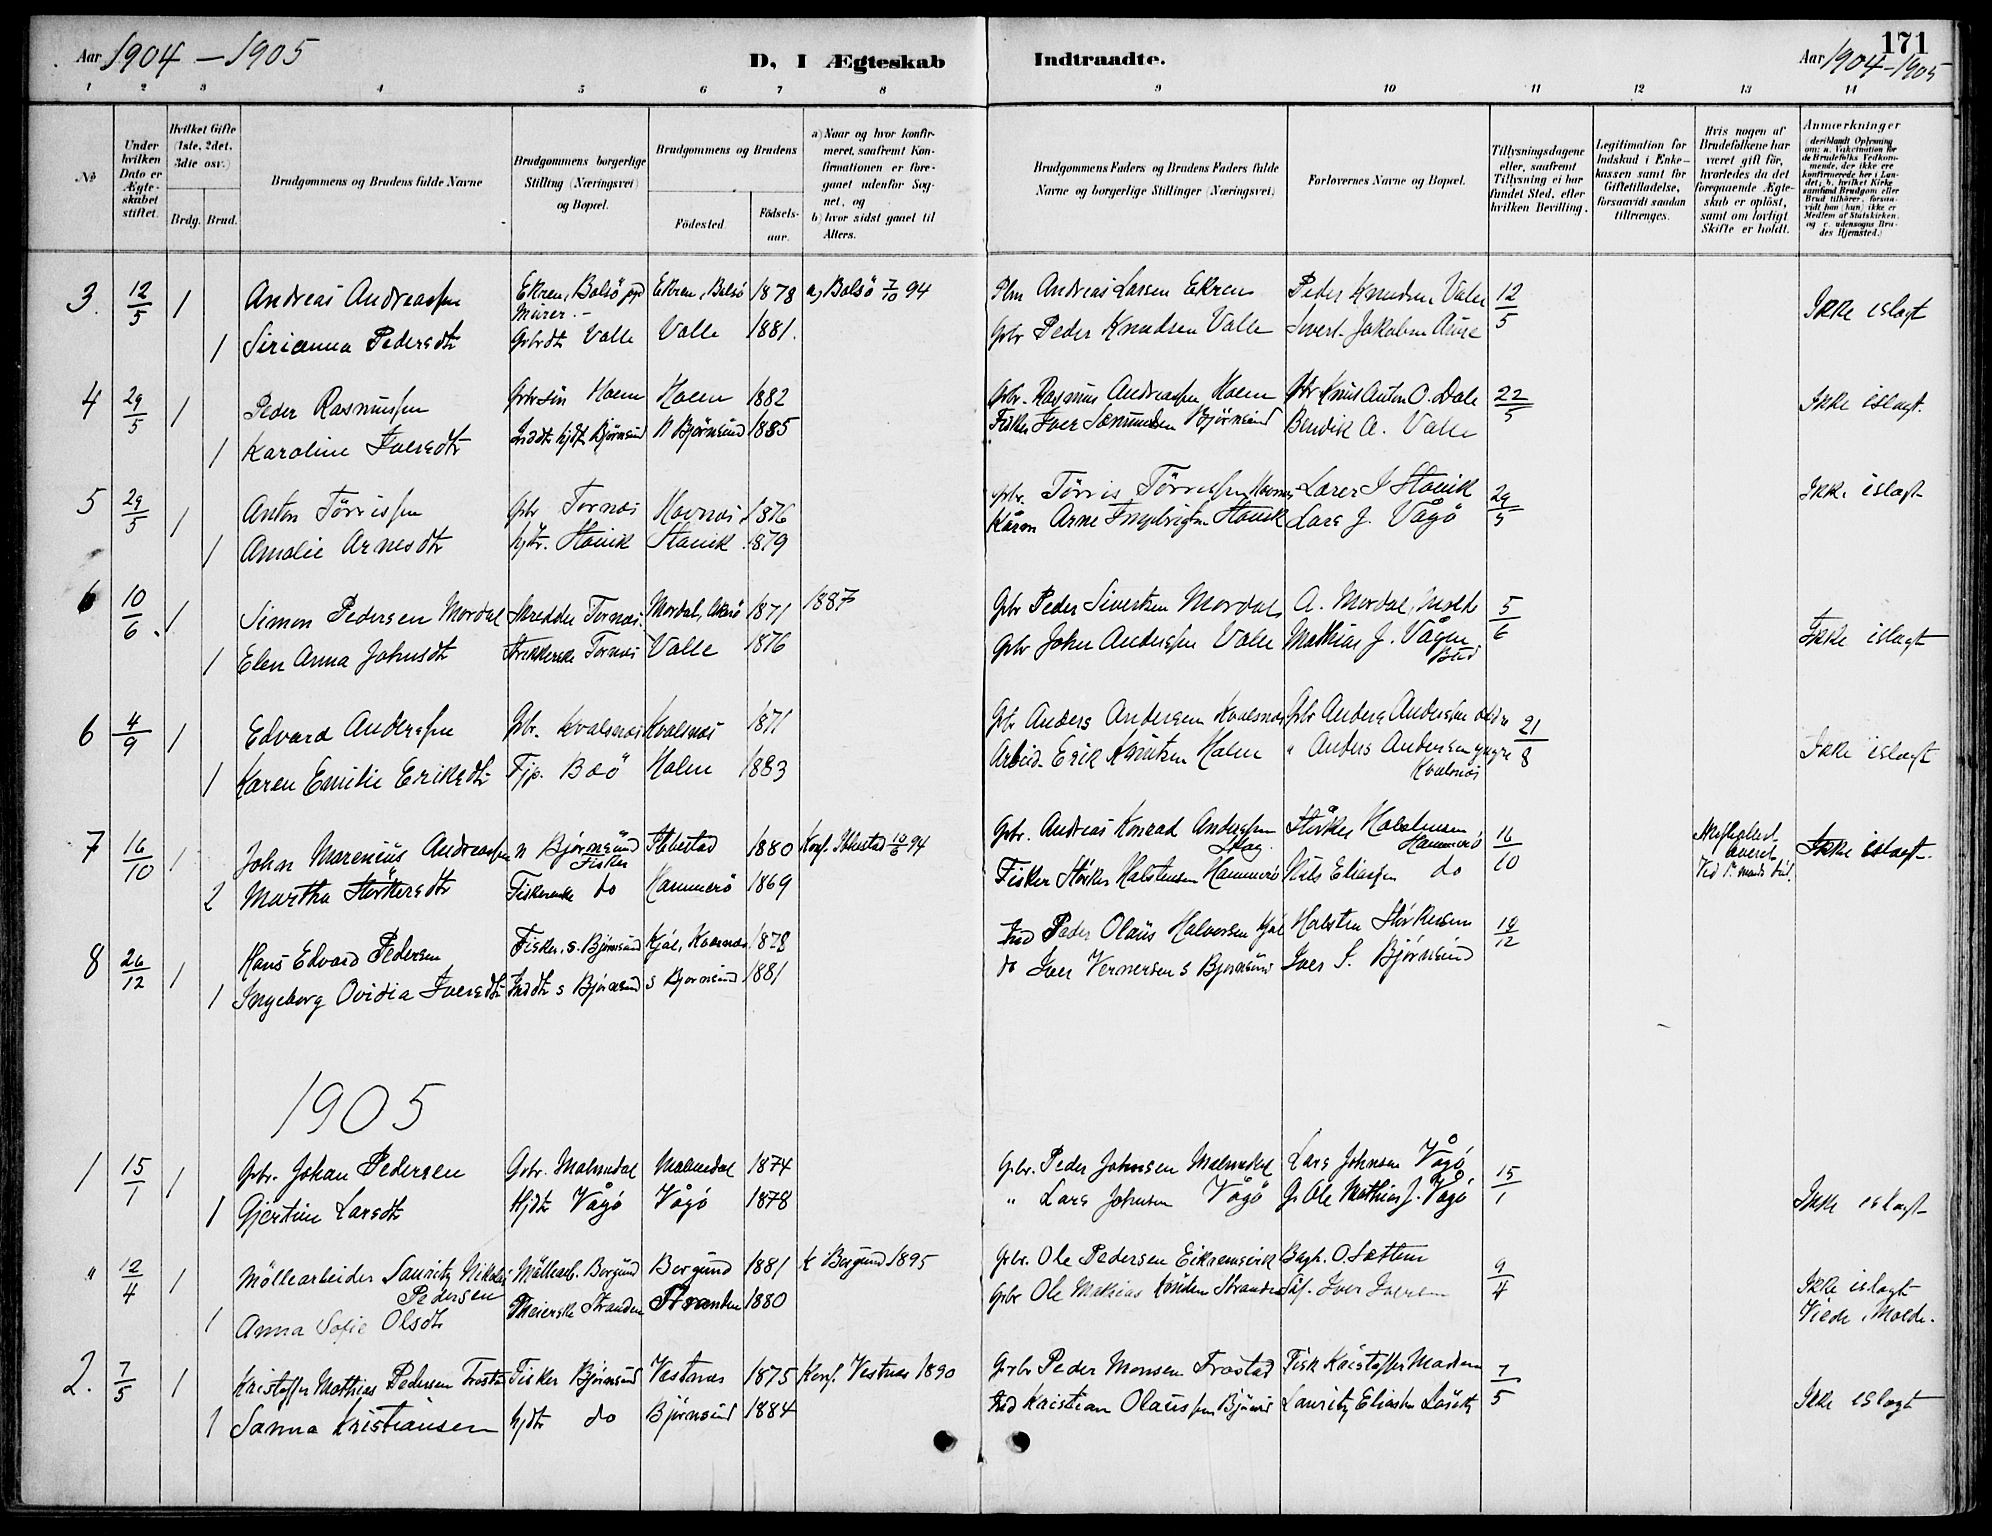 171
Aar 1904 – 1905
D, I Ægteskab Indtraadte.
Aar 1904-1905
1 2 3 4 5 6 7 8 9 10 11 12 13 14
No
Under hvilken Dato er Ægteskabet stiftet.
Hvilket Gifte (1ste, 2det, 3die osv.)
Brdg. Brud.
Brudgommens og Brudens fulde Navne
Brudgommens borgerlige Stilling (Næringsvei) og Bopæl.
Brudgommens og Brudens
Fødested. Fødselsaar.
a) Naar og hvor konfirmeret, saafremt Konfirmationen er foregaaet udenfor Sognet, og
b) hvor sidst gaaet til Alters.
Brudgommens Faders og Brudens Faders fulde Navne og borgerlige Stillinger (Næringsvei)
Forlovernes Navne og Bopæl.
Tillysningsdagene eller, saafremt Tillysning ei har fundet Sted, efter hvilken Bevilling.
Legitimation for Indskud i Enkekassen samt for Giftetilladelse, forsaavidt saadan tiltrænges.
Hvis nogen af Brudefolkene har været gift før, hvorledes da det foregaaende Ægteskab er opløst, samt om lovligt Skifte er holdt.
Anmærkninger (deriblandt Oplysning om: a. Vaccination for de Brudefolks Vedkommende, der ikke ere konfirmerede her i Landet; b. hvilket Kirkesamfund Brudgom eller Brud tilhører, forsaavidt han (hun) ikke er Medlem af Statskirken, og c. udensogns Brudes Hjemsted.)
3. 12/5 1 Andreas Andreassen Ekren, Bolsö pgd Murer. Ekren, Bolsö 1878 a, Bolsö 7/10 94 Plm Andreas Larsen Ekren Peder Knudsen Valle 12/5 Ikke islagt
1 Sirianna Pedersdtr Gbrdt Valle Valle 1881. Gbr Peder Knudsen Valle Sivert Jakobsen
4 29/5 1 Peder Rasmussen Gbrsøn Hoem Hoem 1882 Gbr. Rasmus Andreassen Hoem Gbr Knut Anton O. Dale 22/5 Ikke islagt.
1 Karoline Iversdtr hjdt Björnsund N Björnsund 1885 Fisker Iver Sæmundsen Björnsund Bendik A. Valle
5 29/5 1 Anton Törrissen Gbr Tornes 1876 Gbr. Törris Törrissen Lærer J Stavik 29/5 Ikke islagt
1 Amalie Arnesdtr hjdtr. Stavik Stavik 1879 Kårm Arne Ingebrigtsen Stavik Lars J. Vågö
6 10/6 1 Simon Pedersen Mordal Skredder Tornes. Mordal, Akrö 1871 1887 Gbr Peder Sivertsen Mordal A. Mordal, Molde 5/6 Ikke islagt
1 Elen Anna Johnsdt Strikkerske Tornes Valle 1876 Gbr John Anderssen Valle Mathias J. Vågen Bud
6 4/9 1 Edvard Anderssen Gbr. Kvalsnes Kvalsnes 1871 Gbr Anders Andersen Kvalsnes Gbr Anders Anderssen 21/8 Ikke islagt
1 Karen Emilie Eriksdtr Tjp. Boö Malm 1883 Arbeid. Erik Knutsen Malm " Anders Andersen yngre Kvalsnes
7 16/10 1 John Marenius Andreassen N Björnsund Fisker Ibbestad 1880 Konf. Ibbestad 10/6 94 Gbr. Andreas Konrad Anderssen Skog. Störker Halstensen Hammerö 16/10 Ikke islagt.
2 Martha Störkersdtr Fiskerenke do Hammerö 1869 Fisker Störker Halstensen Hammerö Nils Eliassen do Ved 1. mands död.
8 26/12 1 Hans Edvard Pedersen Fisker, s. Björnsund Kjöl, Kvernes 1878 Ind Peder Olaus Halvorsen Kjöl Halsten Störkersen 18/12
1 Ingeborg Ovidia Iversdtr Inddtr s Björnsund s Bjornsund 1881 do Iver Vernersen s Björnsund Iver S. Björnsund
1905
1 15/1 1 Gbr. Johan Pedersen Gbr. Malmedal Malmedal 1874 Gbr. Peder Johnsen Malmedal Lars Johnsen Vågö 15/1 Ikke islagt
1 Gjertine Larsdtr Hjdtr Vågö Vågö 1878 " Lars Johnsen Vågö G. Ole Mathias J. Vågö
" 12/4 1 Möllearbeider Lauritz Nikolai Pedersen Möllearb. Borgund Borgund 1881 K i Borgund 1895 Gbr. Ole Pedersen Eikremsvik Bagh. O Sættem 9/4 Ikke islagt Viede i Molde.
1 Anna Sofie Olsdtr Meierske Stranden Stranden 1880 Gbr Ole Mathias Knudsen Stranden Iver Iversen
2. 7/5 1 Kristoffer Mathias Pedersen Frostad Fisker Björnsund Vestnes 1875 Konf. Vestnes 1890 Gbr Peder Monsen Frostad Fisk Kristoffer Madsen 7/5 Ikke islagt
1 Sanna Kristiansen hjdtr do Björnsund 1884 Ind Kristian Olaussen Björns Lauritz Eliassen